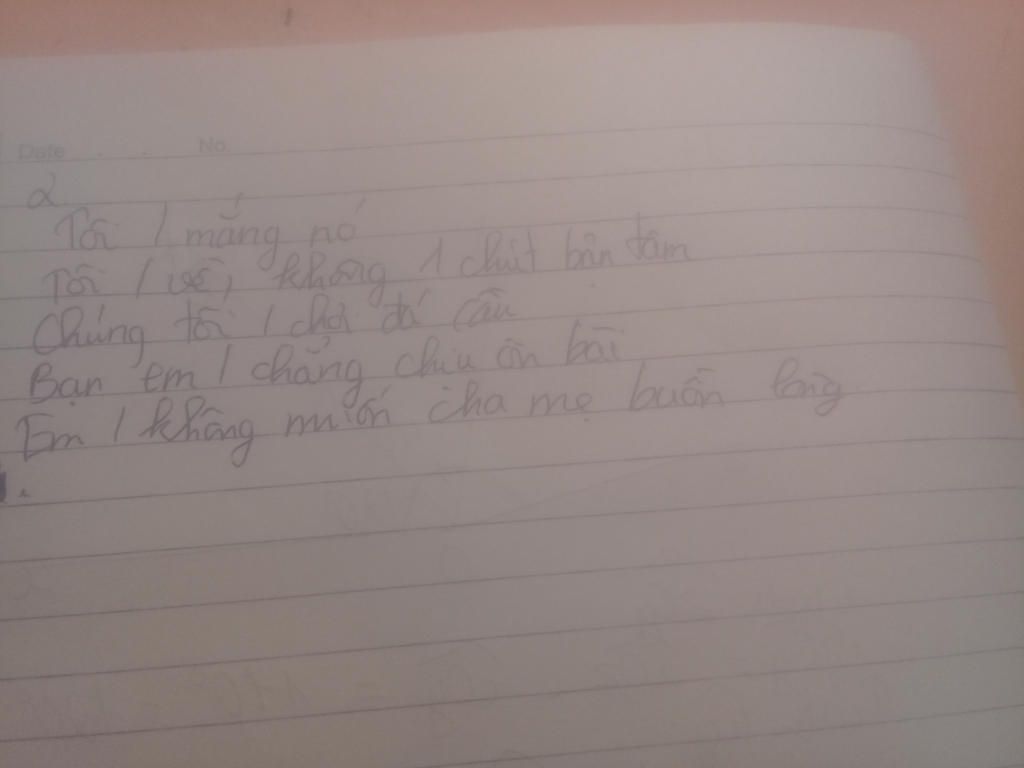 Date . . No.
2
Tôi / mắng nó
Tôi / về, không 1 chút bận tâm
Chúng tôi / chơi đá cầu
Bạn em / chẳng chịu ôn bài
Em / không muốn cha mẹ buồn lòng